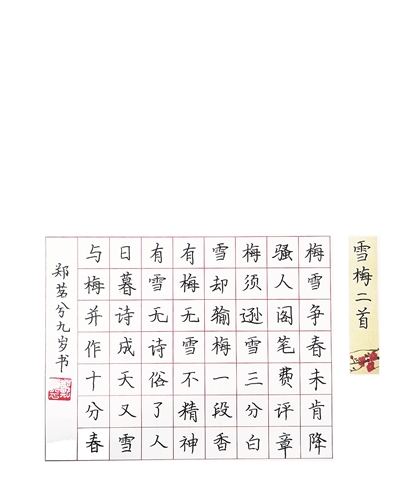 雪梅二首
梅雪争春未肯降
骚人阁笔费评章
梅须逊雪三分白
雪却输梅一段香
有梅无雪不精神
有雪无诗俗了人
日暮诗成天又雪
与梅并作十分春
郑茗兮九岁书